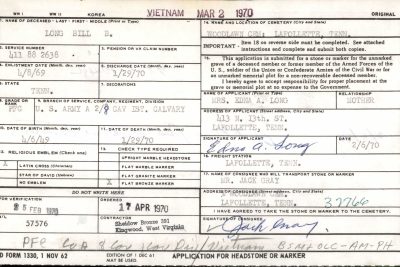 VIETNAM MAR 2 1970
WW I WW II KOREA ORIGINAL
1. NAME OF DECEASED - LAST - FIRST - MIDDLE (Print or Type)
LONG BILL B.
14. NAME AND LOCATION OF CEMETERY (City and State)
WOODLAWN CEM: LAFOLLETTE, TENN.
2. SERVICE NUMBER
411 88 2638
3. PENSION OR VA CLAIM NUMBER
IMPORTANT Item 18 on reverse side must be completed. See attached instructions and complete and submit both copies.
4. ENLISTMENT DATE
4/8/69
5. DISCHARGE DATE
1/29/70
This application is submitted for a stone or marker for the unmarked grave of a deceased member or former member of the Armed Forces of the U.S., soldier of the Union or Confederate Armies of the Civil War or for an unmarked memorial plot for a non-recoverable deceased member.
I hereby agree to accept responsibility for proper placement at the grave or memorial plot at no expense to the Government.
6. STATE
TENN.
7. DECORATIONS
8. GRADE OR
PFC
9. BRANCH OF SERVICE, COMPANY, REGIMENT, DIVISION
U. S. ARMY A 2/8 CAV 1ST. CALVARY
RELATIONSHIP
MRS. EDNA A. LONG MOTHER
413 N. 13th. ST.
LAFOLLETTE, TENN.
10. DATE OF BIRTH (Month, Day, Year)
4/6/49
11. DATE OF DEATH (Month, Day, Year)
SIGNATURE OF APPLICANT DATE
Edna A. Long 2/6/70
12. RELIGIOUS EMBLEM (Check one)
X LATIN CROSS (Christian)
STAR OF DAVID (Jewish)
NO EMBLEM
13. CHECK TYPE REQUIRED
UPRIGHT MARBLE HEADSTONE
FLAT MARBLE MARKER
FLAT GRANITE MARKER
X FLAT BRONZE MARKER
16. FREIGHT STATION
LAFOLLETTE, TENN.
17. NAME OF CONSIGNEE WHO WILL TRANSPORT STONE OR MARKER
MR. JACK GRAY
DO NOT WRITE HERE
ADDRESS OF CONSIGNEE
LAFOLLETTE, TENN. 37766
25 FEB 1970
ORDERED
17 APR 1970
I HAVE AGREED TO TAKE THE STONE OR MARKER TO THE CEMETERY.
57576
CONTRACTOR
Sheidow Bronze 391
Kingwood, West Virginia
SIGNATURE OF CONSIGNEE
Jack Gray
PFC Co A 8 Cav 1 Cav Div Vietnam BSM & OLC-AM-PH
FORM 1330, 1 NOV 62
EDITION OF 1 DEC 61 MAY BE USED
APPLICATION FOR HEADSTONE OR MARKER